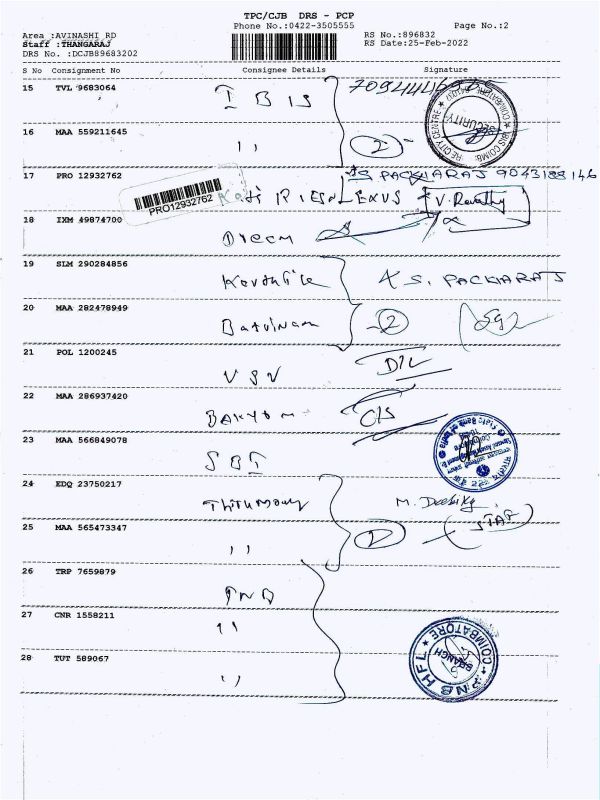 TPC/CJB DRS - PCP
Phone No.:0422-3505555 Page No.:2
Area :AVINASHI RD RS No.:896832
Staff :THANGARAJ RS Date:25-Feb-2022
DRS No. :DCJB89683202
S No Consignment No Consignee Details Signature
15 TVL 9683064 IBIS
16 MAA 559211645 ,, 2
SECURITY
17 PRO 12932762 S PACKIARAJ 9043188146
PRO12932762
LEXUS V. Revathy
18 IXM 49874700
19 SLM 290284856 S. PACKIARAJ
20 MAA 282478949 2
21 POL 1200245 VSV
22 MAA 286937420
23 MAA 566849078 SBI
24 EDQ 23750217 M.
(STAF)
25 MAA 565473347 ,, 2
26 TRP 7659879 PNB
27 CNR 1558211 ,,
28 TUT 589067 ,,
PNB HFL ★ COIMBATORE ★
BRANCH